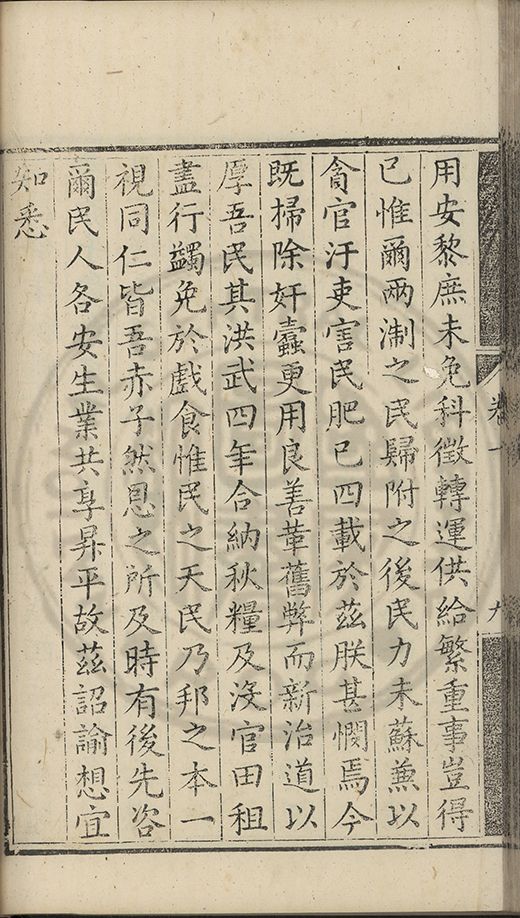 用安黎庶未免科徵轉運供給繁重事豈得
已惟爾兩淛之民歸附之後民力未蘇兼以
貪官汙吏害民肥已四載於茲朕甚憫焉今
既掃除奸蠹更用良善革舊弊而新治道以
厚吾民其洪武四年合納秋糧及沒官田租
盡行蠲免於戲食惟民之天民乃邦之本一
視同仁皆吾赤子然恩之所及時有後先咨
爾民人各安生業共享昇平故茲詔諭想宜
知悉